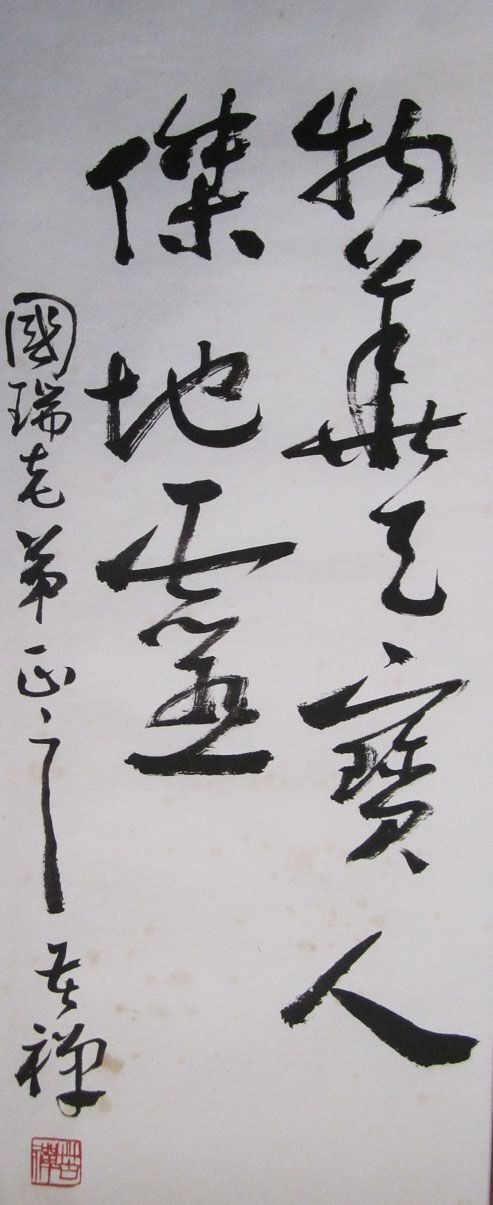 物華天寶人
傑地靈
國瑞老弟正之
苦禪
苦禪